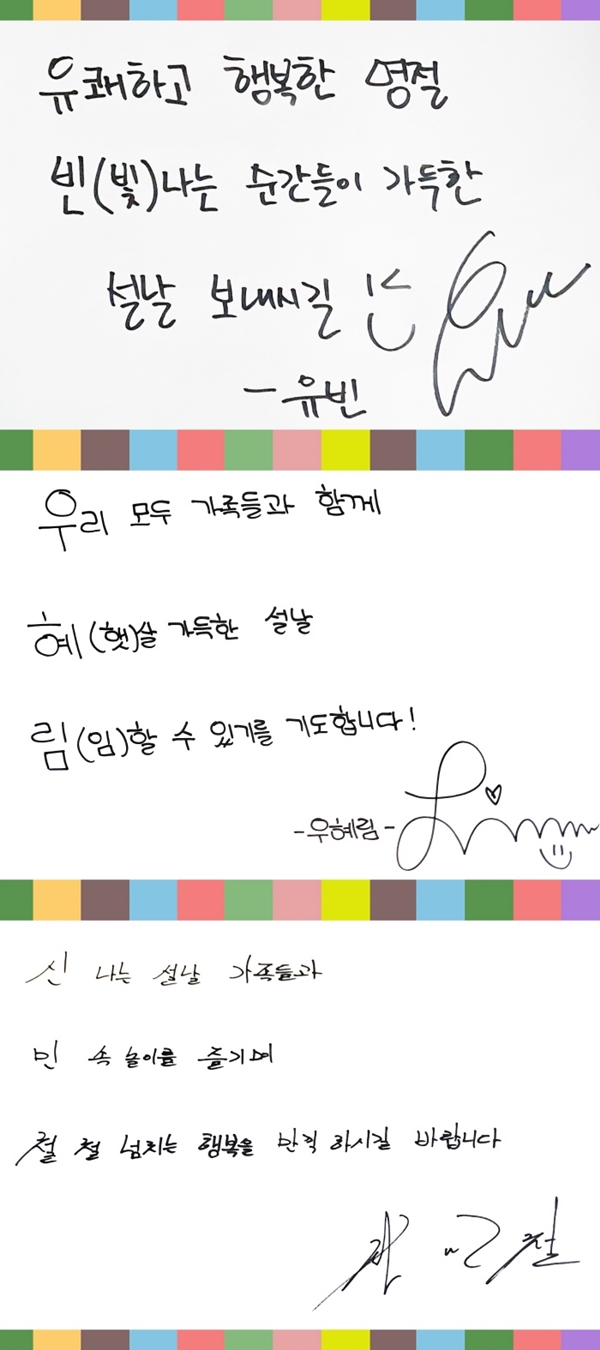 유쾌하고 행복한 명절
빈(빛)나는 순간들이 가득한
설날 보내시길
-유빈
우리 모두 가족들과 함께
혜(햇)살 가득한 설날
림(임)할 수 있기를 기도합니다!
-우혜림-
신 나는 설날 가족들과
민 속 놀이를 즐기며
철 철 넘치는 행복을 만끽 하시길 바랍니다